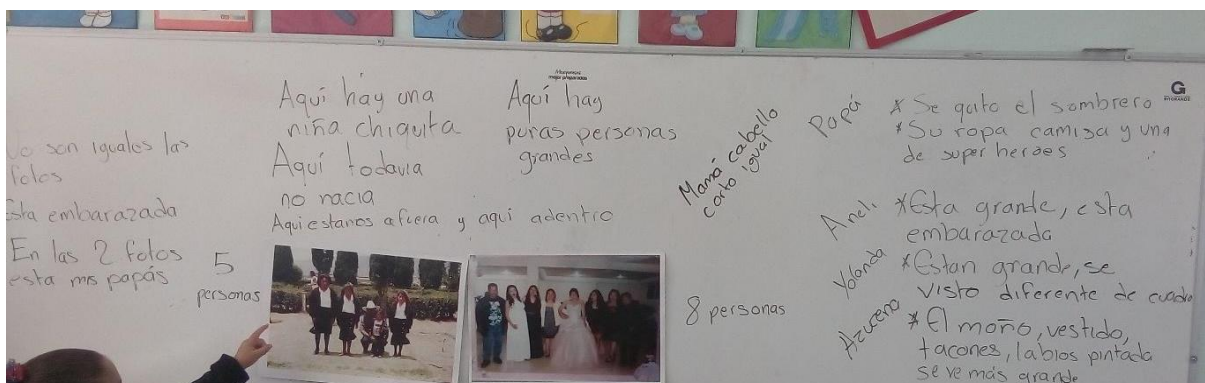 no son iguales las
fotos
Esta embarazada
En las 2 fotos
esta mis papás
5
personas
Aquí hay una
niña chiquita
Aquí todavia
no nacia
Aqui estamos afuera y aquí adentro
Aquí hay
puras personas
grandes
8 personas
Mamá cabello
corto igual
Papá
* Se quito el sombrero
* Su ropa camisa y una
de super heroes
Aneli
* Esta grande, esta
embarazada
Yolanda
* Estan grande, se
visto diferente de cuadro
Azucena
* El moño, vestido,
tacones, labios pintada
se ve más grande